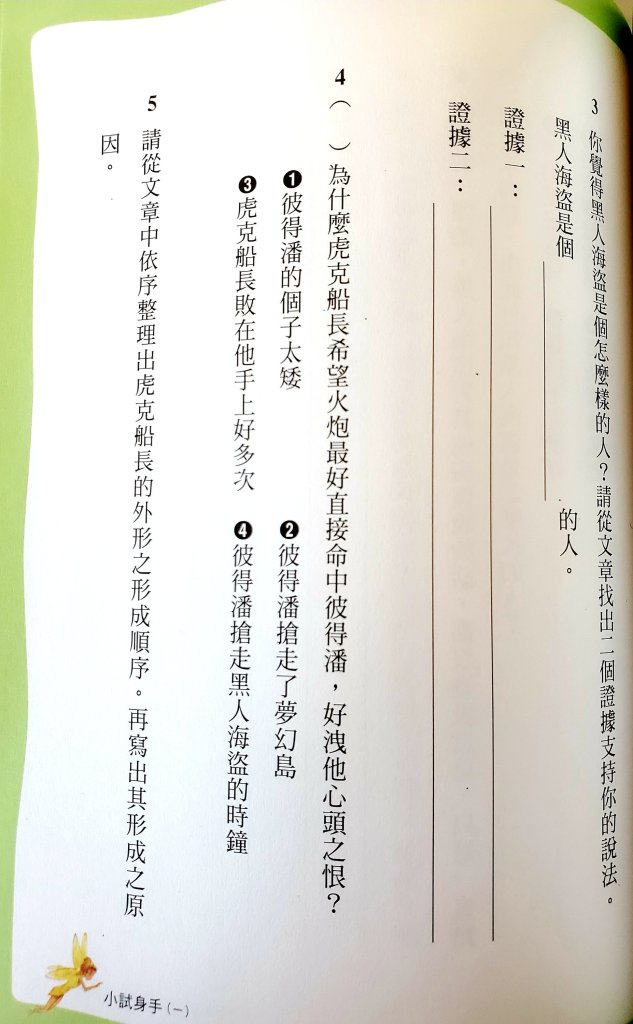 3 你覺得黑人海盜是個怎麼樣的人？請從文章找出二個證據支持你的說法。
黑人海盜是個　　　　的人。
證據一：
證據二：
4（　）為什麼虎克船長希望火炮最好直接命中彼得潘，好洩他心頭之恨？
❶彼得潘的個子太矮　❷彼得潘搶走了夢幻島
❸虎克船長敗在他手上好多次　❹彼得潘搶走黑人海盜的時鐘
5 請從文章中依序整理出虎克船長的外形之形成順序。再寫出其形成之原
因。
小試身手(一)